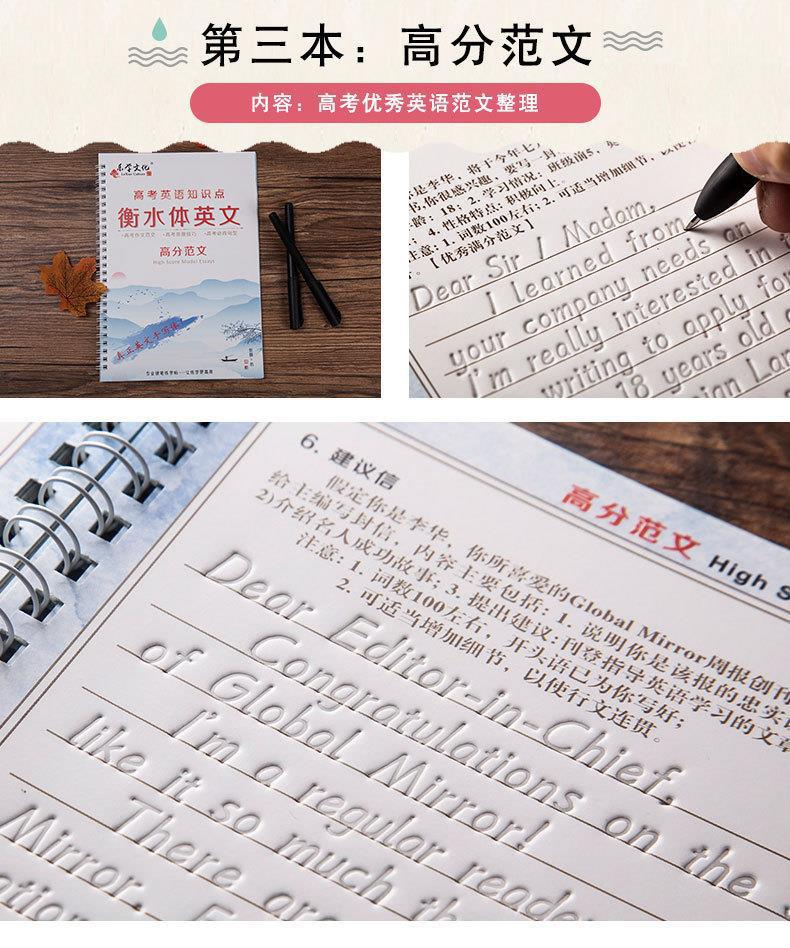 第三本：高分范文
内容：高考优秀英语范文整理
乐学文化
高考英语知识点
衡水体英文
高分范文
High Score Model Essays
真正英文手写体
是华，将于今年七
18；2. 学习情况：班级前5，英
4. 性格特点：积极向上。
注意：1. 词数100左右；2. 可适当增加细节，以使
。【优秀满分范文】
Dear Sir / Madam,
I learned from
your company needs an
I'm really interested in
writing to apply for
18 years old
6. 建议信
高分范文 High S
假定你是李华，你所喜爱的Global Mirror周报创刊
给主编写封信，内容主要包括：1. 说明你是该报的忠实
2)介绍名人成功故事；3. 提出建议:刊登指导英语学习的文章
注意：1. 词数100左右，开头语已为你写好；
2. 可适当增加细节，以使行文连贯。
Dear Editor-in-Chief,
Congratulations on the
of Global Mirror!
I'm a regular reader
like it so much th
There are
Mirror.